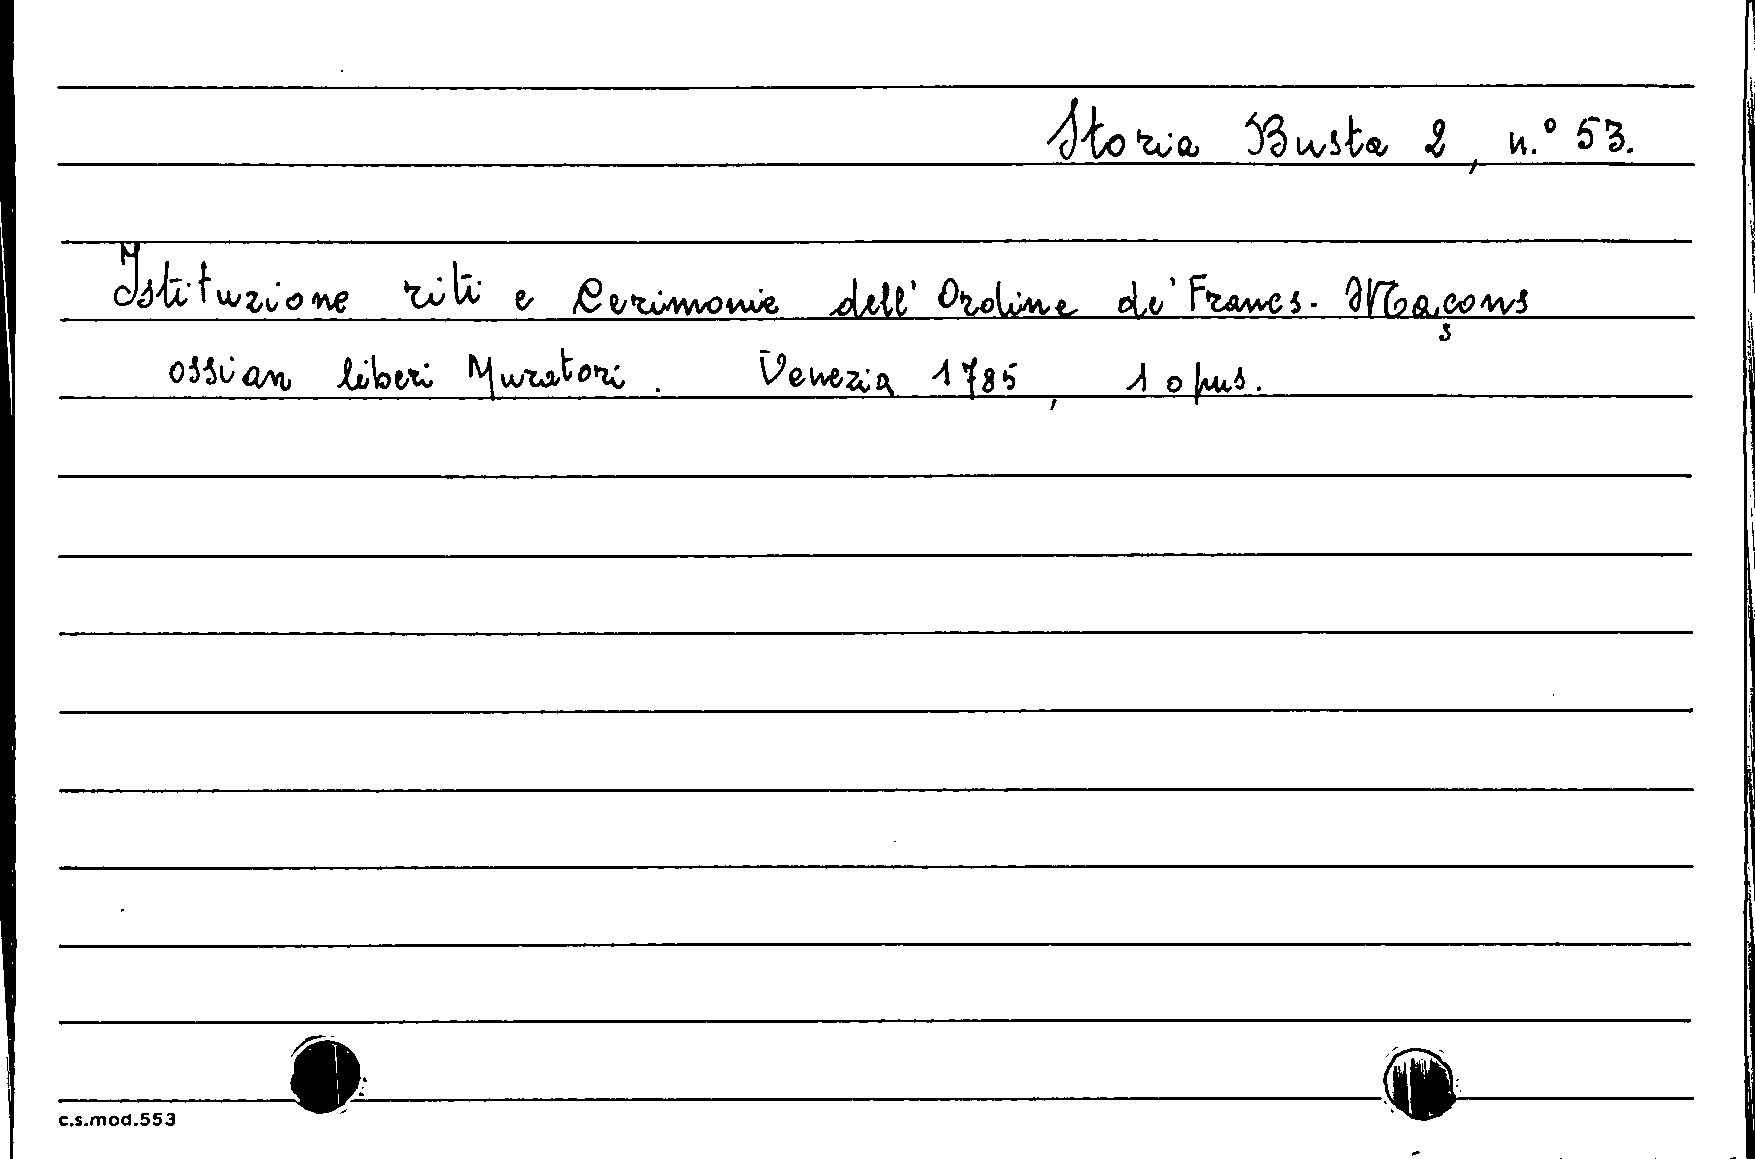 Storia Busta 2, n.° 53.
Istituzione riti e Cerimonie dell' Ordine de' Francs-Maçons
ossian liberi Muratori. Venezia 1785, 1 opus.
c.s.mod.553